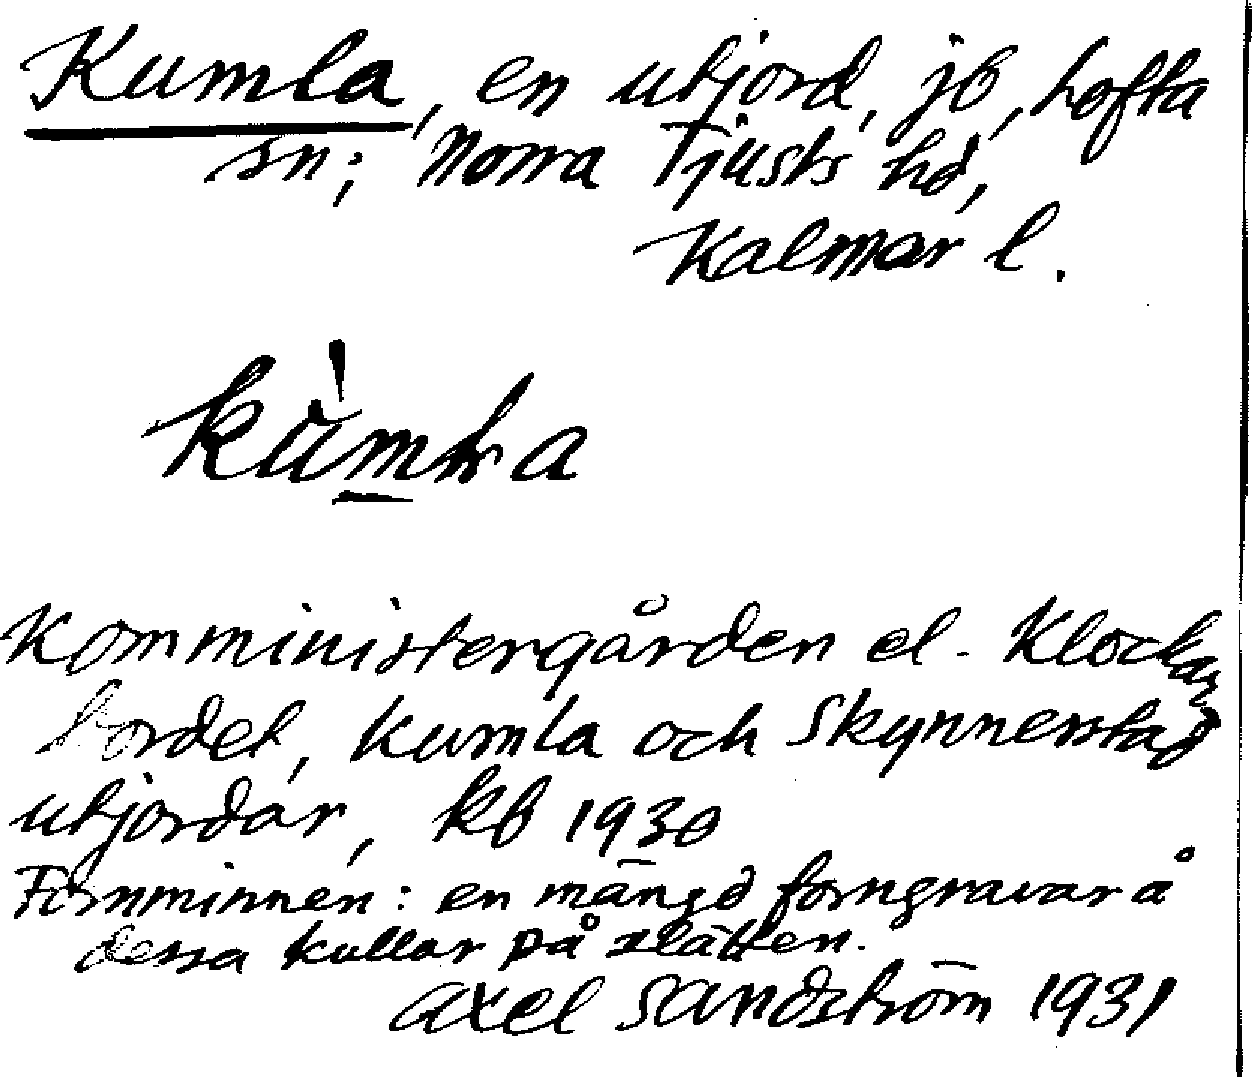 Kumla, en utjord, jb, Lofta
sn; Norra Tjusts hd,
Kalmar l.
Komministergården el. Klockar
bordet, Kumla och Skynnerstad
utjordar, kb 1930
Fornminnen: en mängd forngravar å
dessa kullar på slätten.
Axel Sandström 1931